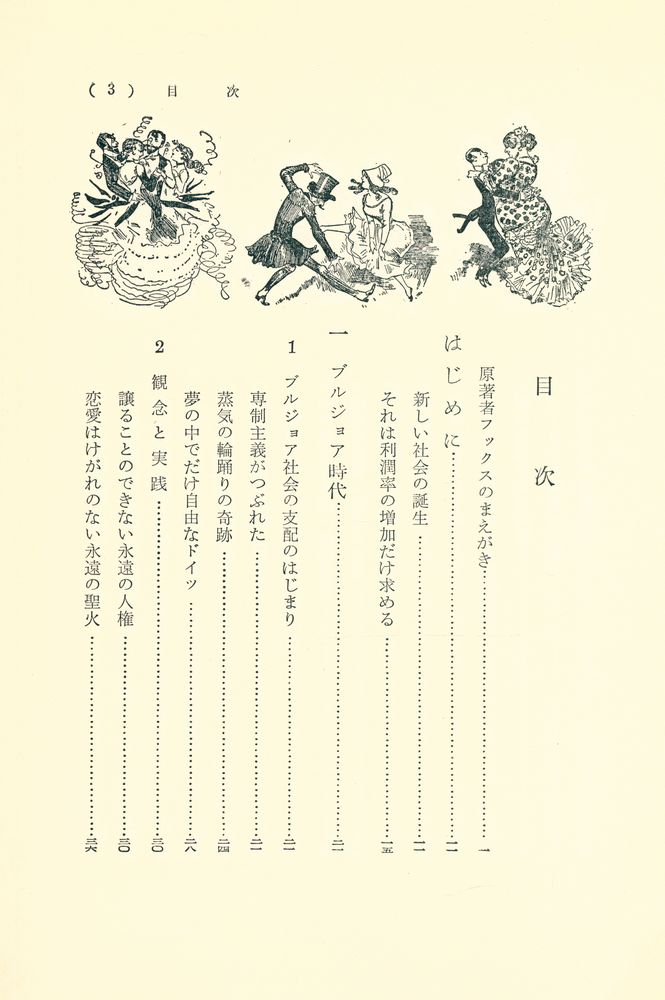 (3) 目次
目次
原著者フックスのまえがき……一
はじめに……一一
新しい社会の誕生……一一
それは利潤率の増加だけ求める……一五
一 ブルジョア時代……二一
1 ブルジョア社会の支配のはじまり……二一
専制主義がつぶれた……二一
蒸気の輪踊りの奇跡……二四
夢の中でだけ自由なドイツ……二八
2 観念と実践……三〇
譲ることのできない永遠の人権……三〇
恋愛はけがれのない永遠の聖火……三六